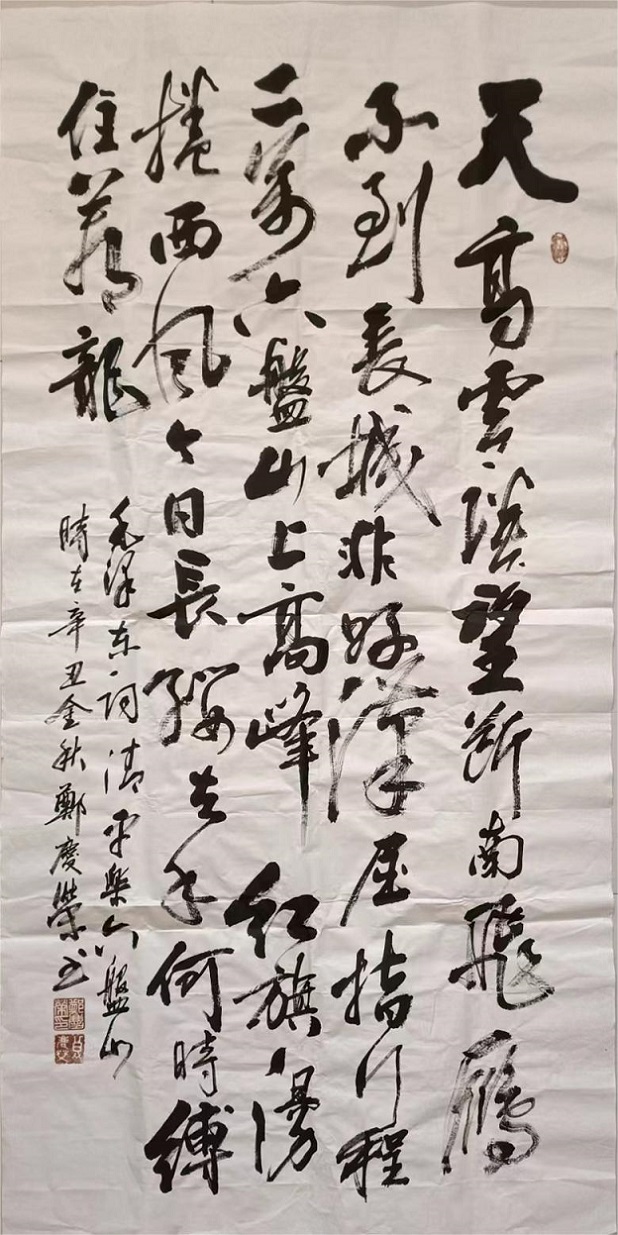 天高雲淡望斷南飛雁
不到長城非好漢屈指行程
二萬六盤山上高峰紅旗漫
捲西風今日長纓在手何時縛
住蒼龍
毛澤東詞清平樂六盤山
時在辛丑金秋鄭慶榮书